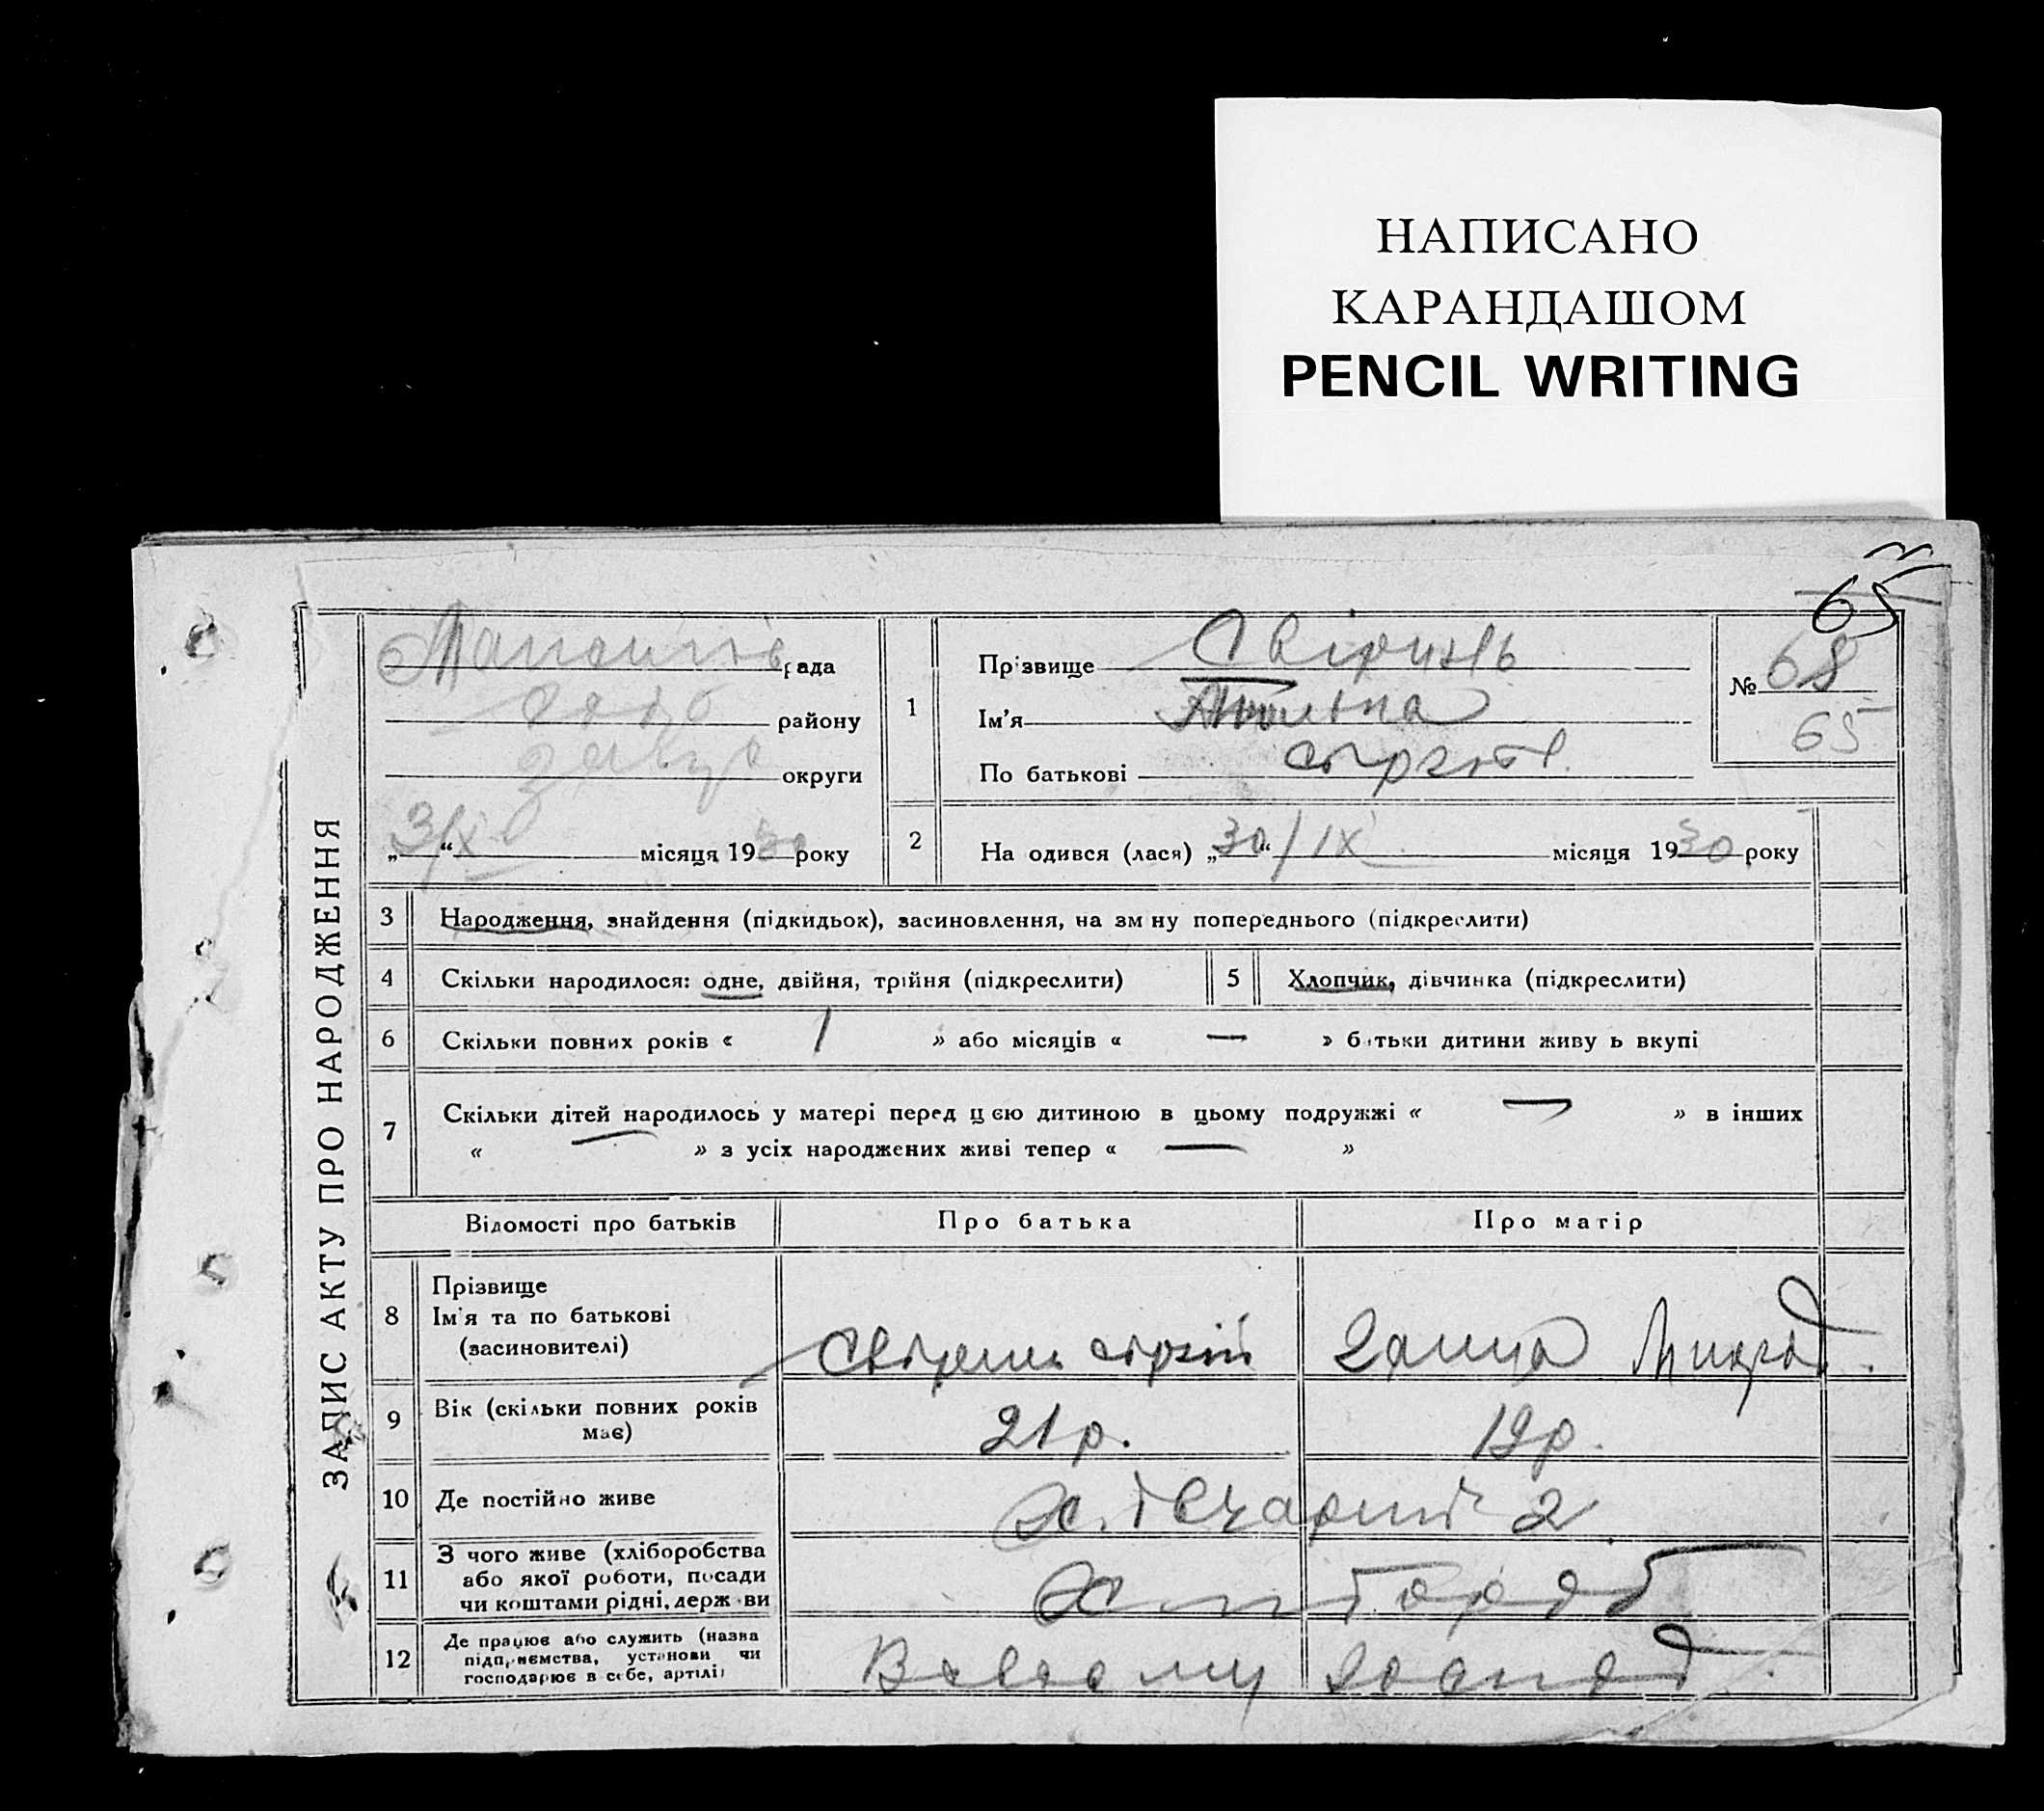 НАПИСАНО
КАРАНДАШОМ
PENCIL WRITING
65
рада
району
округи
„3/ІХ“ місяця 1930 року
1
Прізвище Свіринь
Ім'я
По батькові
№ 68
65
2
На одився (лася) „30“/ІХ місяця 1930 року
ЗАПИС АКТУ ПРО НАРОДЖЕННЯ
3 Народження, знайдення (підкидьок), засиновлення, на зм ну попереднього (підкреслити)
4 Скільки народилося: одне, двійня, трійня (підкреслити)
5 Хлопчик, дівчинка (підкреслити)
6 Скільки повних років « 1 » або місяців « — » б тьки дитини живу ь вкупі
7 Скільки дітей народилось у матері перед ц єю дитиною в цьому подружжі « — » в інших
« — » з усіх народжених живі тепер « — »
Відомості про батьків
Про батька
Про матір
8 Прізвище
Ім'я та по батькові
(засиновителі)
9 Вік (скільки повних років
має)
21 р.
19 р.
10 Де постійно живе
х. 2
11 З чого живе (хліборобства
або якої роботи, посади
чи коштами рідні, держ ви
12 Де працює або служить (назва
підприємства, установи чи
господарює в себе, артілі)